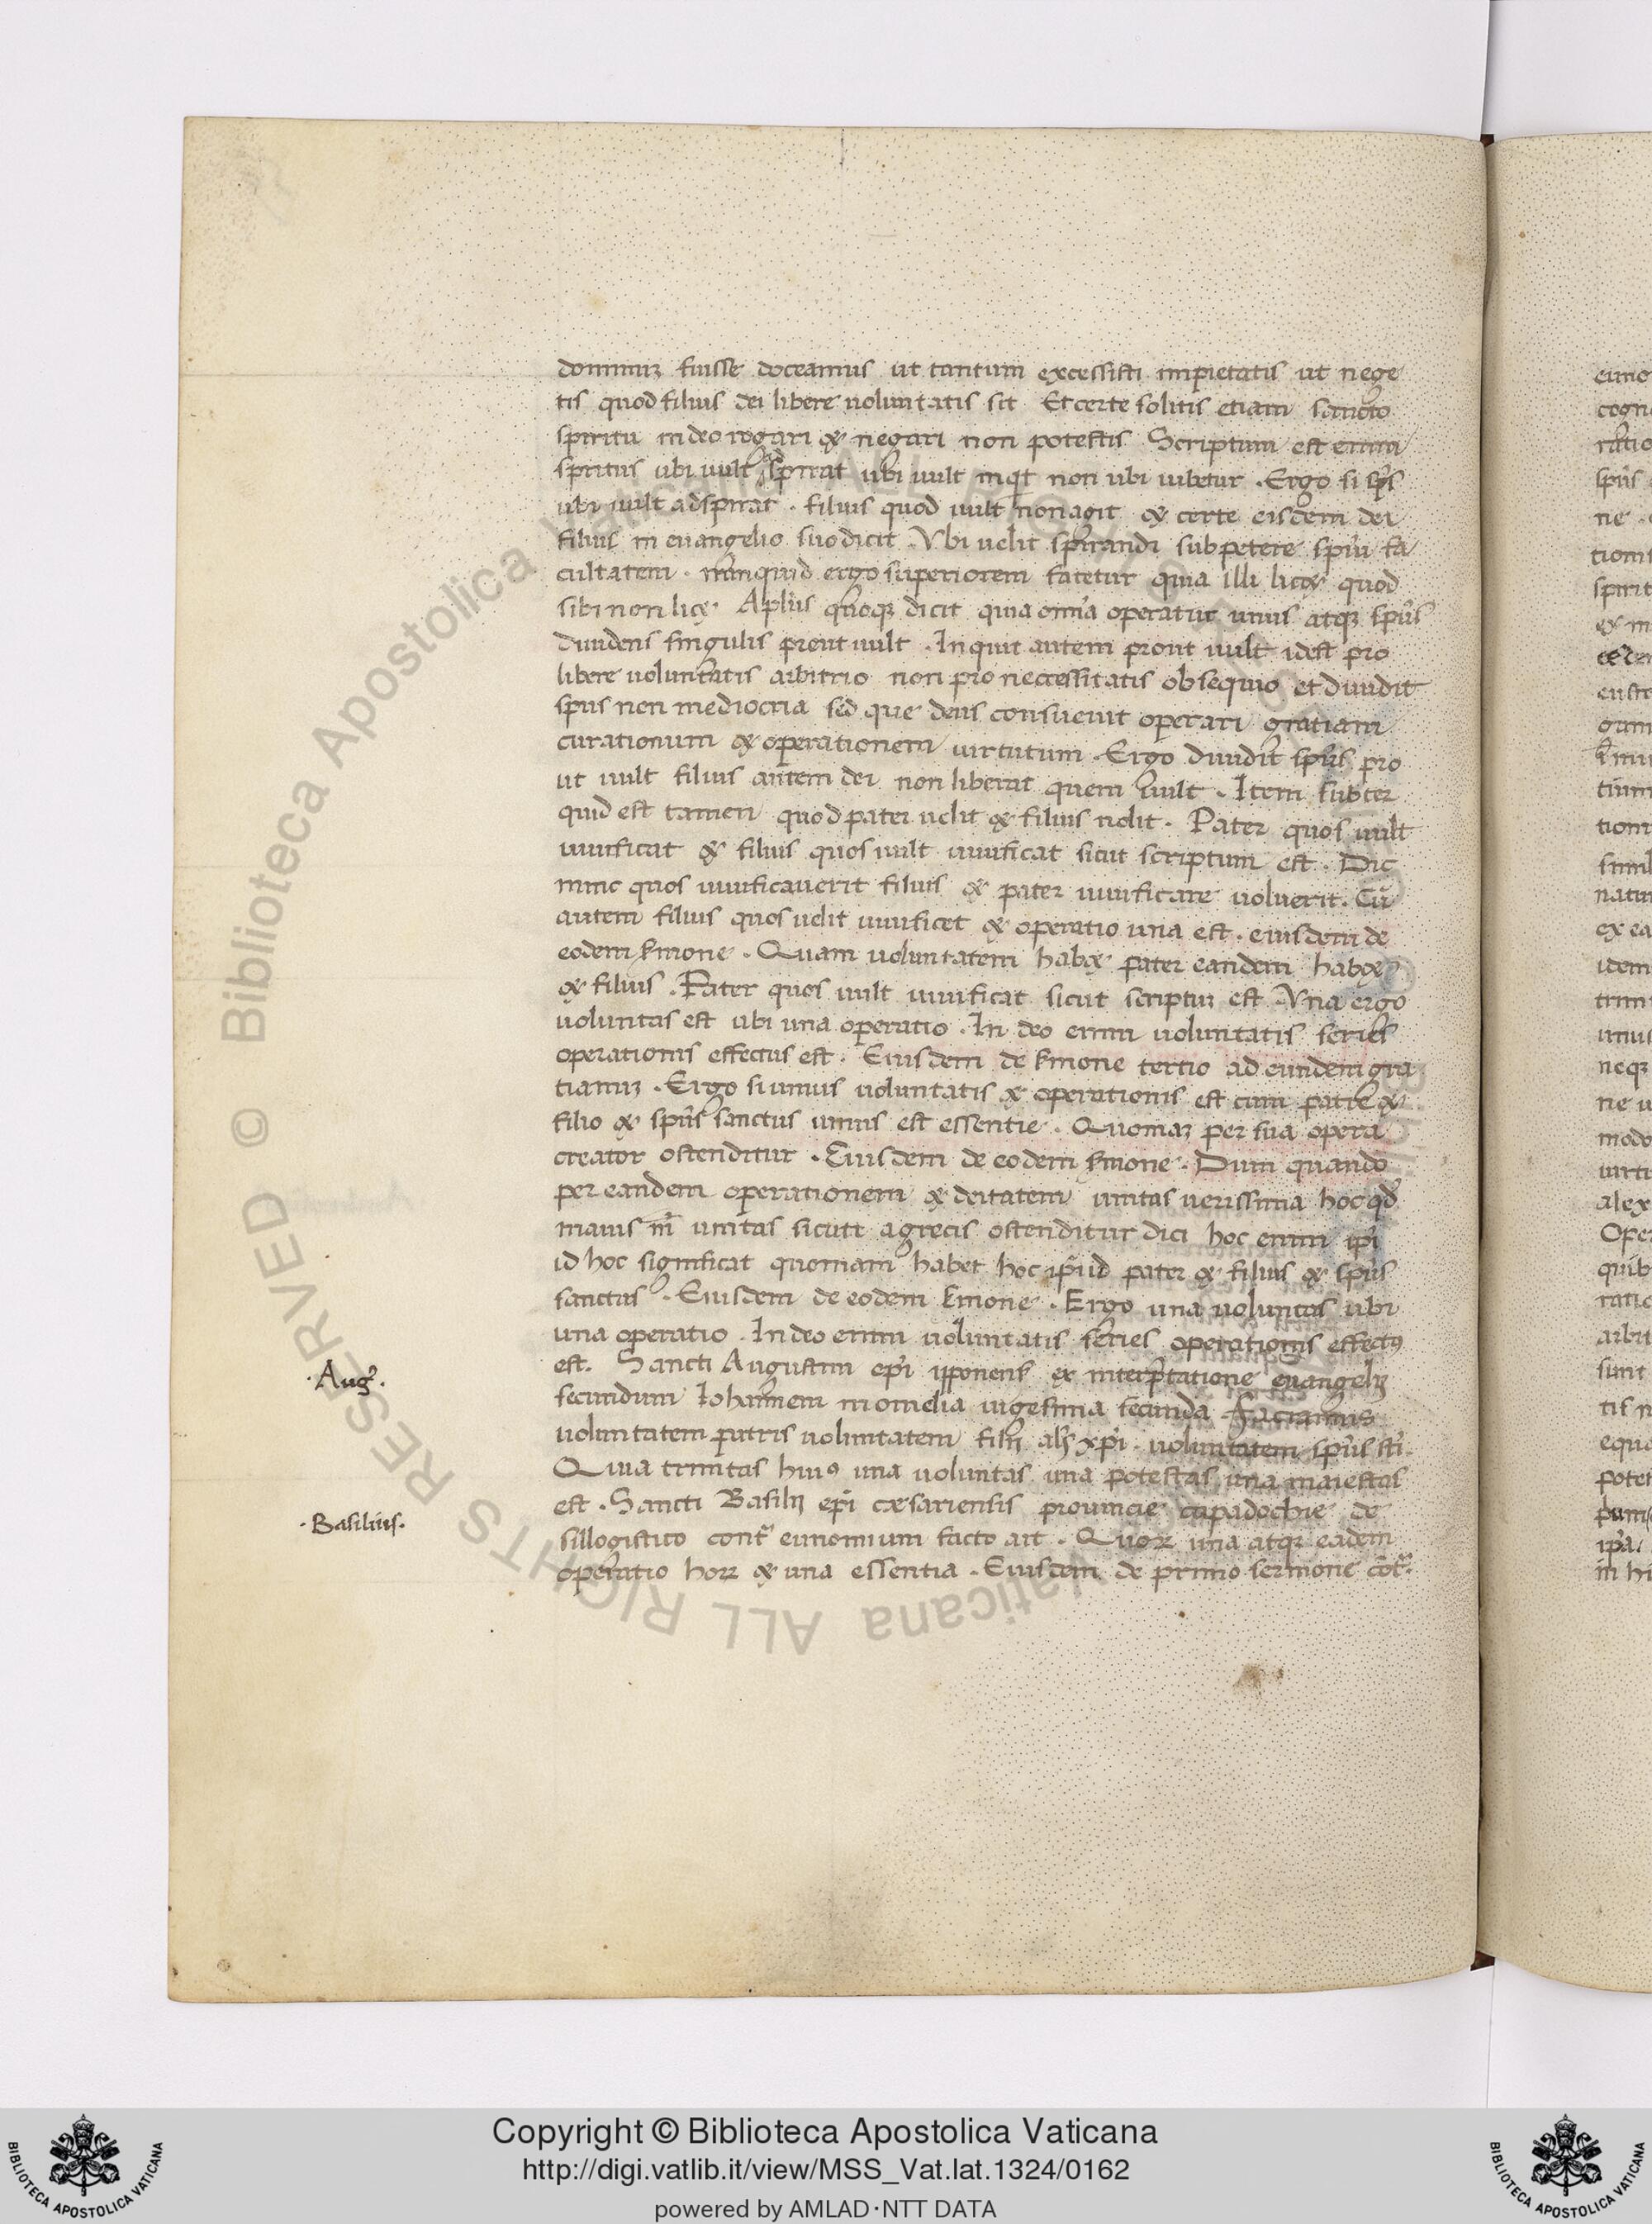 dominuꝫ fuisse doceamus ut tantum excessisti impietatis ut nege
tis quod filius dei libere uoluntatis sit Et certe solitis etiam sancto
spiritu in deo rogari & negari non potestis Scriptum est enim
spiritus ubi uult spirat ubi uult inqt non ubi iubetur . Ergo si sp̄s
ubi uult adspirat . filius quod uult non agit & certe eisdem dei
filius in euangelio suo dicit . Vbi uelit spirandi subpetere spiū fa
cultatem . nunquid ergo superiorem fatetur quia illi lic& quod
sibi non lic& Apl̄us quoqꝫ dicit quia om̄ia operatur unus atqꝫ sp̄us
diuidens singulis prout uult . Inquit autem prout uult idest pro
libere uoluntatis arbitrio non pro neccessitatis obsequio et diuidit
sp̄us non mediocria sed que deus consueuit operari gratiam
curationum & operationem uirtutum . Ergo diuidit sp̄us pro
ut uult filius autem dei non liberat quem uult . Item subter
quid est tamen quod pater uelit & filius nolit . Pater quos uult
uiuificat & filius quos uult uiuificat sicut scriptum est . Dic
nunc quos uiuificauerit filius & pater uiuificare uoluerit . Cū
autem filius quos uelit uiuificet & operatio una est . eiusdem de
eodem s̄mone . Quam uoluntatem hab& pater eandem hab&
& filius . Pater quos uult uiuificat sicut scriptuꝫ est . Vna ergo
uoluntas est ubi una operatio . In deo enim uoluntatis series
operationis effectus est . Eiusdem de s̄mone tertio ad eundem gra
tianuꝫ . Ergo si unius uoluntatis & operationis est cum patre &
filio & sp̄us sanctus unius est essentie . Quoniaꝫ per sua opera
creator ostenditur . Eiusdem de eodem s̄mone . Dum quando
per eandem operationem & deitatem unitas uerissima hoc qd̄
mauis in unitas sicuti a grecis ostenditur dici hoc enim ip̄i
id hoc significat quoniam habet hoc ip̄ud pater & filius & sp̄us
sanctus . Eiusdem de eodem s̄mone . Ergo una uoluntas ubi
una operatio . In deo enim uoluntatis series operationis effectꝰ
est . Sancti Augustini ep̄i ipponens̄ ex interp̄tatione euangelij
secundum Iohannem in omelia uigesima secunda
uoluntatem patris uoluntatem filij uoluntatem sp̄us sti .
Quia trinitas huiꝰ una uoluntas una potestas una maiestas
est . Sancti Basilij ep̄i cæsariensis prouincie capadochie de
sillogistico cont̄ eunomium facto ait . Quoꝝ una atqꝫ eadem
operatio hoꝝ & una essentia . Eiusdem de primo sermone cōt̄ .
. Aug̃ .
. Basilius .
Copyright © Biblioteca Apostolica Vaticana
http://digi.vatlib.it/view/MSS_Vat.lat.1324/0162
powered by AMLAD·NTT DATA
BIBLIOTECA APOSTOLICA VATICANA
BIBLIOTECA APOSTOLICA VATICANA
© Biblioteca Apostolica Vaticana ALL RIGHTS RESERVED